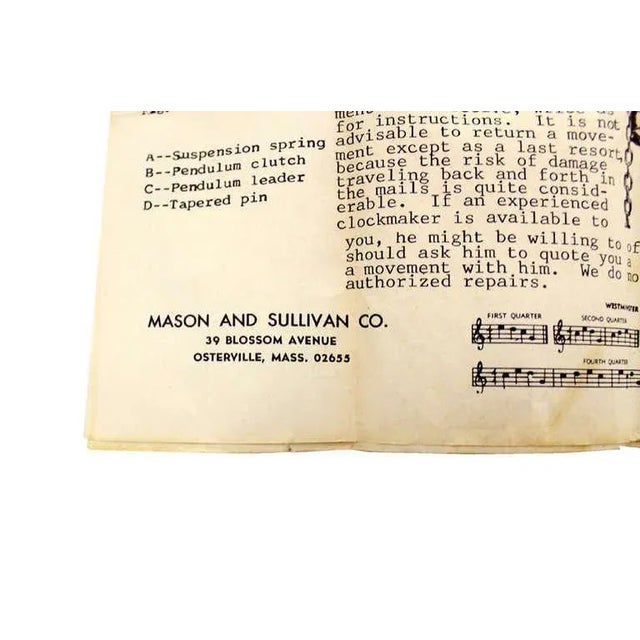 A--Suspension spring
B--Pendulum clutch
C--Pendulum leader
D--Tapered pin
for instructions. It is not
advisable to return a move-
ment except as a last resort,
because the risk of damage
traveling back and forth in
the mails is quite consid-
erable. If an experienced
clockmaker is available to
you, he might be willing to of
should ask him to quote you a
a movement with him. We do no
authorized repairs.
MASON AND SULLIVAN CO.
39 BLOSSOM AVENUE
OSTERVILLE, MASS. 02655
WESTMINSTER
FIRST QUARTER
SECOND QUARTER
FOURTH QUARTER